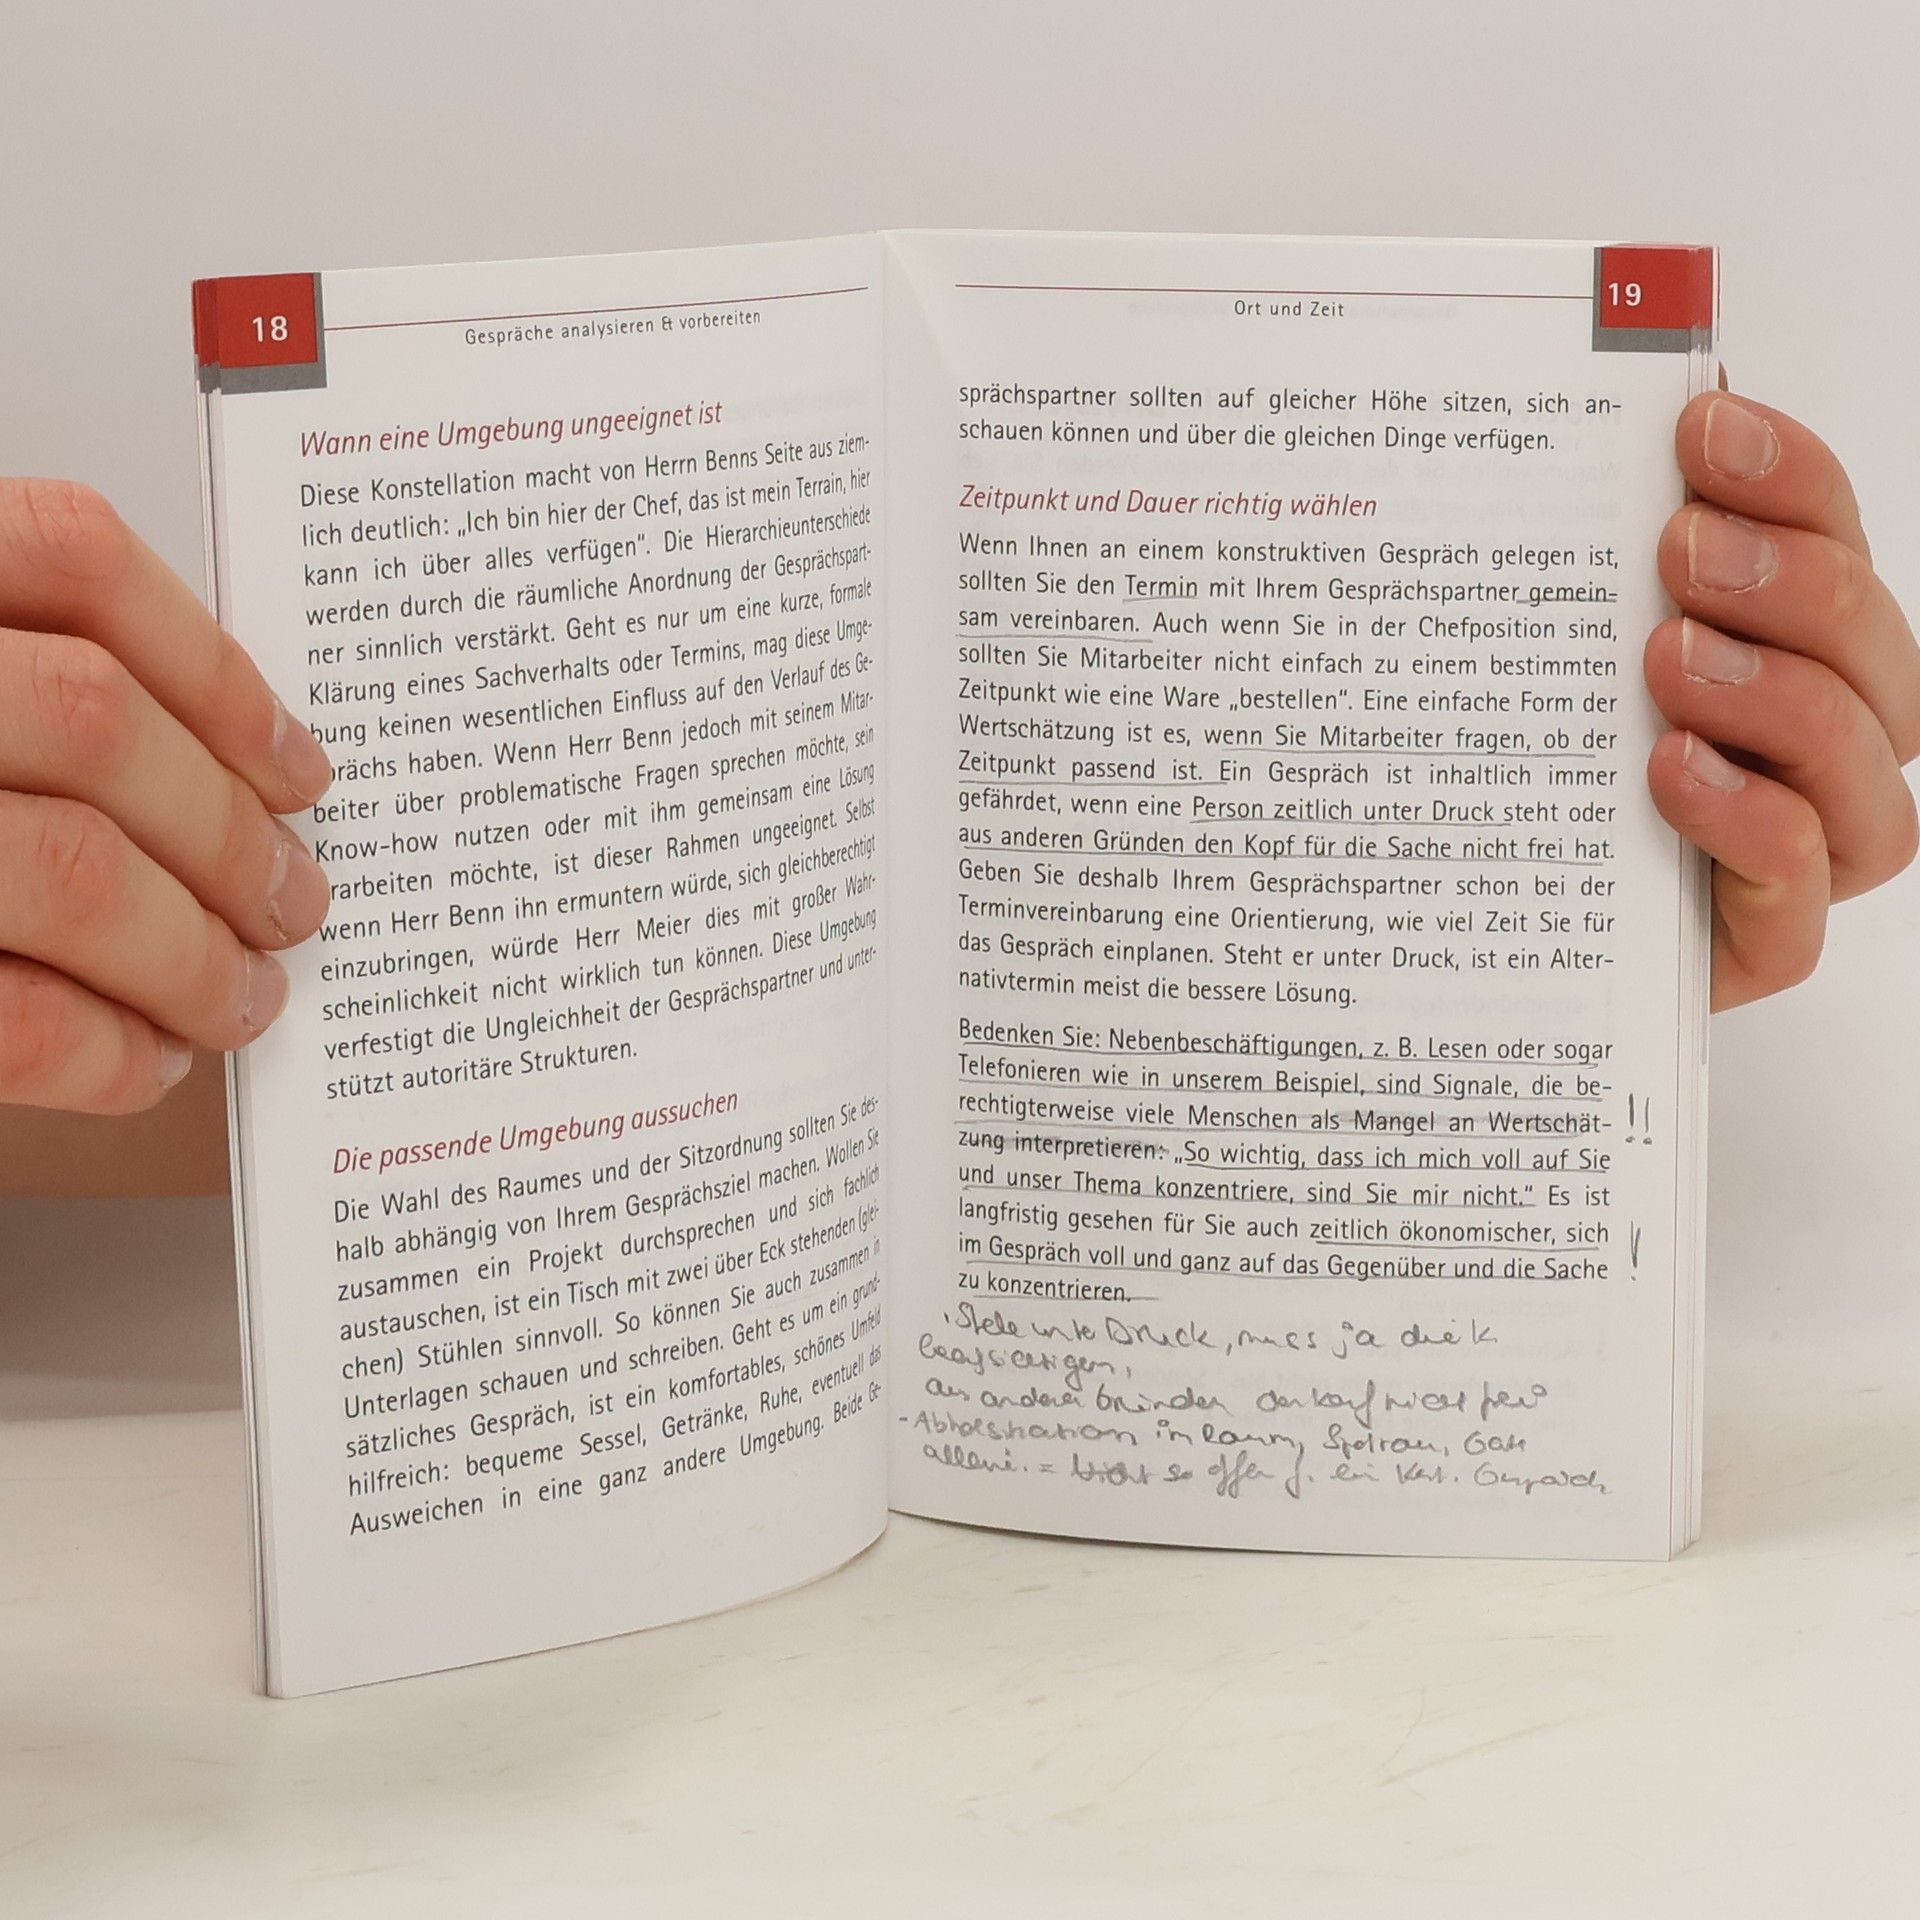 18
Gespräche analysieren & vorbereiten
Wann eine Umgebung ungeeignet ist
Diese Konstellation macht von Herrn Benns Seite aus ziem-
lich deutlich: „Ich bin hier der Chef, das ist mein Terrain, hier
kann ich über alles verfügen“. Die Hierarchieunterschiede
werden durch die räumliche Anordnung der Gesprächspart-
ner sinnlich verstärkt. Geht es nur um eine kurze, formale
Klärung eines Sachverhalts oder Termins, mag diese Umge-
bung keinen wesentlichen Einfluss auf den Verlauf des Ge-
prächs haben. Wenn Herr Benn jedoch mit seinem Mitar-
beiter über problematische Fragen sprechen möchte, sein
Know-how nutzen oder mit ihm gemeinsam eine Lösung
rarbeiten möchte, ist dieser Rahmen ungeeignet. Selbst
wenn Herr Benn ihn ermuntern würde, sich gleichberechtigt
einzubringen, würde Herr Meier dies mit großer Wahr-
scheinlichkeit nicht wirklich tun können. Diese Umgebung
verfestigt die Ungleichheit der Gesprächspartner und unter-
stützt autoritäre Strukturen.
Die passende Umgebung aussuchen
Die Wahl des Raumes und der Sitzordnung sollten Sie des-
halb abhängig von Ihrem Gesprächsziel machen. Wollen Sie
zusammen ein Projekt durchsprechen und sich fachlich
austauschen, ist ein Tisch mit zwei über Eck stehenden (glei-
chen) Stühlen sinnvoll. So können Sie auch zusammen in
Unterlagen schauen und schreiben. Geht es um ein grund-
sätzliches Gespräch, ist ein komfortables, schönes Umfeld
hilfreich: bequeme Sessel, Getränke, Ruhe, eventuell das
Ausweichen in eine ganz andere Umgebung. Beide Ge-
Ort und Zeit
19
sprächspartner sollten auf gleicher Höhe sitzen, sich an-
schauen können und über die gleichen Dinge verfügen.
Zeitpunkt und Dauer richtig wählen
Wenn Ihnen an einem konstruktiven Gespräch gelegen ist,
sollten Sie den Termin mit Ihrem Gesprächspartner gemein-
sam vereinbaren. Auch wenn Sie in der Chefposition sind,
sollten Sie Mitarbeiter nicht einfach zu einem bestimmten
Zeitpunkt wie eine Ware „bestellen“. Eine einfache Form der
Wertschätzung ist es, wenn Sie Mitarbeiter fragen, ob der
Zeitpunkt passend ist. Ein Gespräch ist inhaltlich immer
gefährdet, wenn eine Person zeitlich unter Druck steht oder
aus anderen Gründen den Kopf für die Sache nicht frei hat.
Geben Sie deshalb Ihrem Gesprächspartner schon bei der
Terminvereinbarung eine Orientierung, wie viel Zeit Sie für
das Gespräch einplanen. Steht er unter Druck, ist ein Alter-
nativtermin meist die bessere Lösung.
Bedenken Sie: Nebenbeschäftigungen, z. B. Lesen oder sogar
Telefonieren wie in unserem Beispiel, sind Signale, die be-
rechtigterweise viele Menschen als Mangel an Wertschät- !!
zung interpretieren: „So wichtig, dass ich mich voll auf Sie
und unser Thema konzentriere, sind Sie mir nicht.“ Es ist
langfristig gesehen für Sie auch zeitlich ökonomischer, sich !
im Gespräch voll und ganz auf das Gegenüber und die Sache
zu konzentrieren.
Druck, muss ja die K.
aus anderen Gründen der Kopf nicht frei
im Raum,
= nicht so offen f. ein